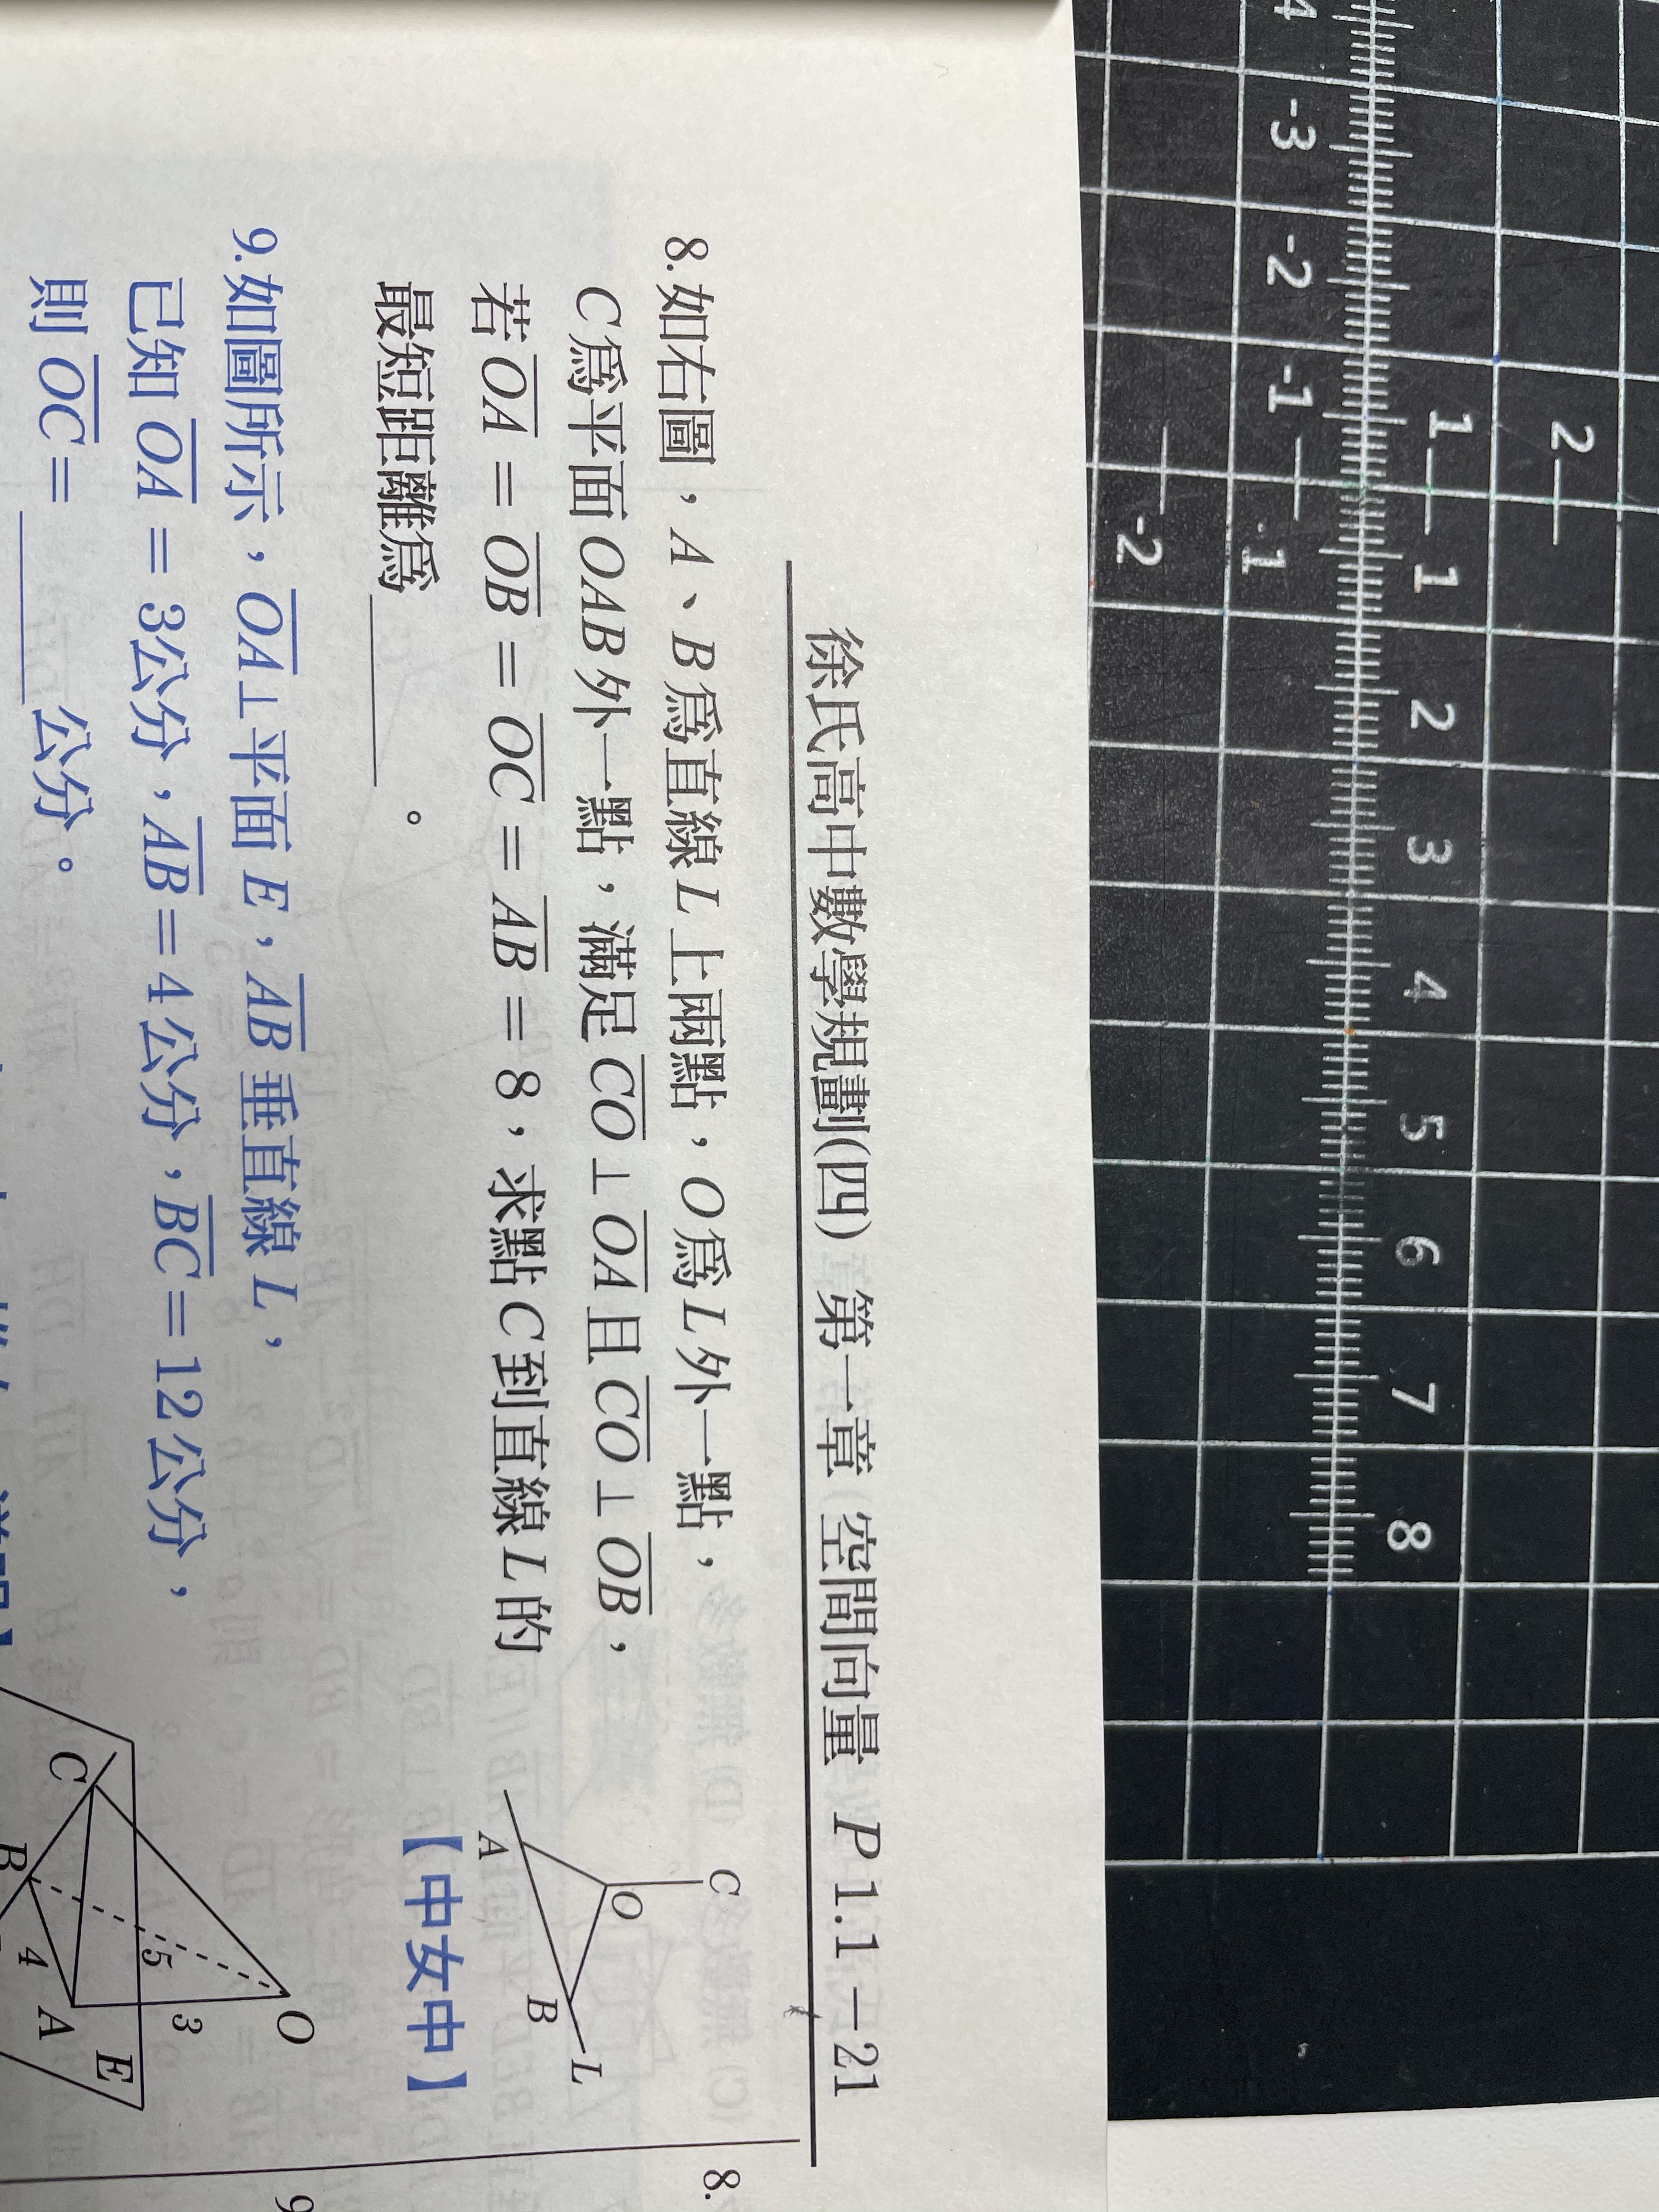 徐氏高中數學規劃(四) 第一章 空間向量 P 1.1－21
8.如右圖，A、B為直線L上兩點，O為L外一點，
C為平面OAB外一點，滿足CO⊥OA且CO⊥OB，
若OA＝OB＝OC＝AB＝8，求點C到直線L的
最短距離為＿＿＿。
【中女中】
C
O
A
B
L
9.如圖所示，OA⊥平面E，AB垂直線L，
已知OA＝3公分，AB＝4公分，BC＝12公分，
則OC＝＿＿＿公分。
O
3
5
4
A
B
C
E
8.
9
4 -3 -2 -1 1 2 3 4 5 6 7 8
2
1
-1
-2